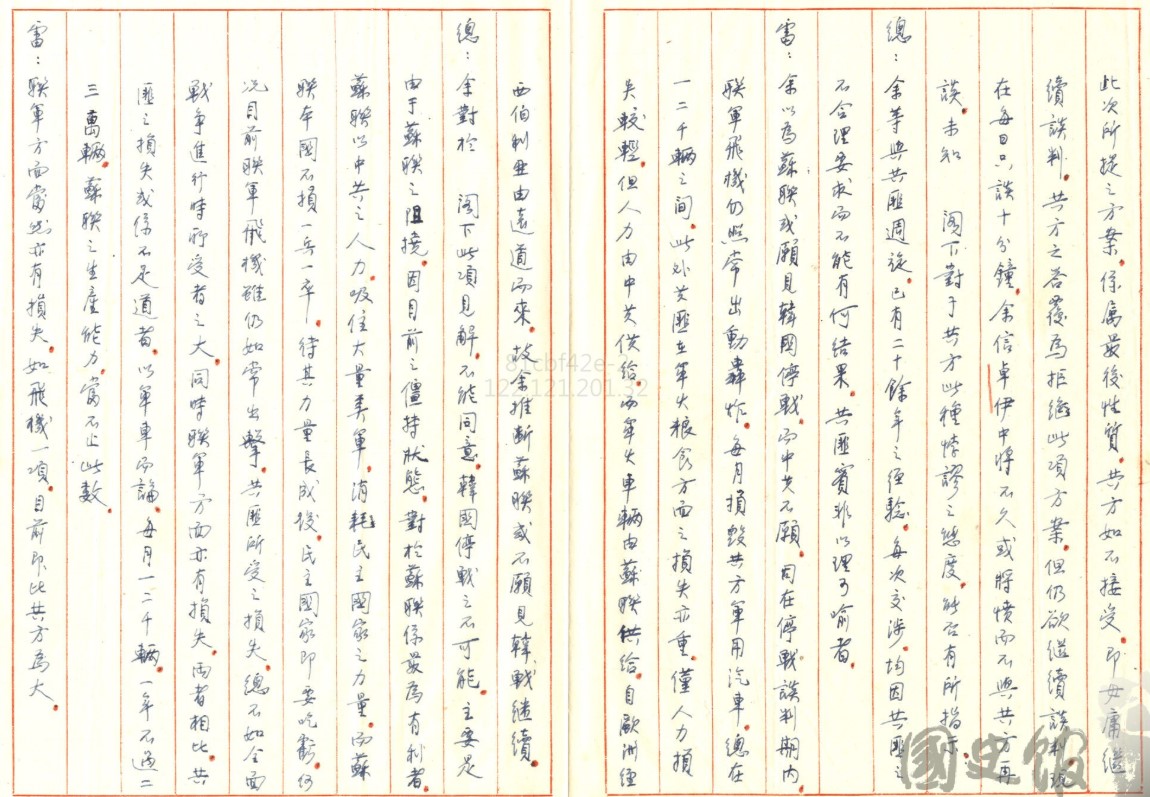 此次所提之方案。係屬最後性質。共方如不接受。即毋庸繼
續談判。共方之答覆為拒絕此項方案。但仍欲繼續談判。現
在每日只談十分鐘。余信卓伊中將不久或將憤而不與共方再
談。未知　閣下對于共方此種悖謬之態度。能否有所指示。
總：余等與共匪週旋。已有二十餘年之經驗。每次交涉。均因共匪之
不合理要求而不能有何結果。共匪實非以理可喻者。
雷：余以為蘇聯或願見韓國停戰。而中共不願。因在停戰談判期內
聯軍飛機仍照常出動轟炸。每月損毀共方軍用汽車。總在
一二千輛之間。此外共匪在軍火糧食方面之損失亦重。僅人力損
失較輕。但人力由中共供給。而軍火車輛由蘇聯供給。自歐洲經
西伯利亞由遠道而來。故余推斷蘇聯或不願見韓戰繼續。
總：余對於　閣下此項見解。不能同意。韓國停戰之不可能。主要是
由于蘇聯之阻撓。因目前之僵持狀態。對於蘇聯係最為有利者。
蘇聯以中共之人力。吸住大量美軍。消耗民主國家之力量。而蘇
聯本國不損一兵一卒。待其力量長成後。民主國家即要吃虧。何
況目前聯軍飛機雖仍如常出擊。共匪所受之損失。總不如全面
戰爭進行時所受者之大。同時聯軍方面亦有損失。兩者相比。共
匪之損失或係不足道者。以軍車而論。每月一二千輛。一年不過二
三萬輛。蘇聯之生產能力。當不止此數。
雷：聯軍方面當然亦有損失。如飛機一項。目前即比共方為大。
國史館
122.121.201.32